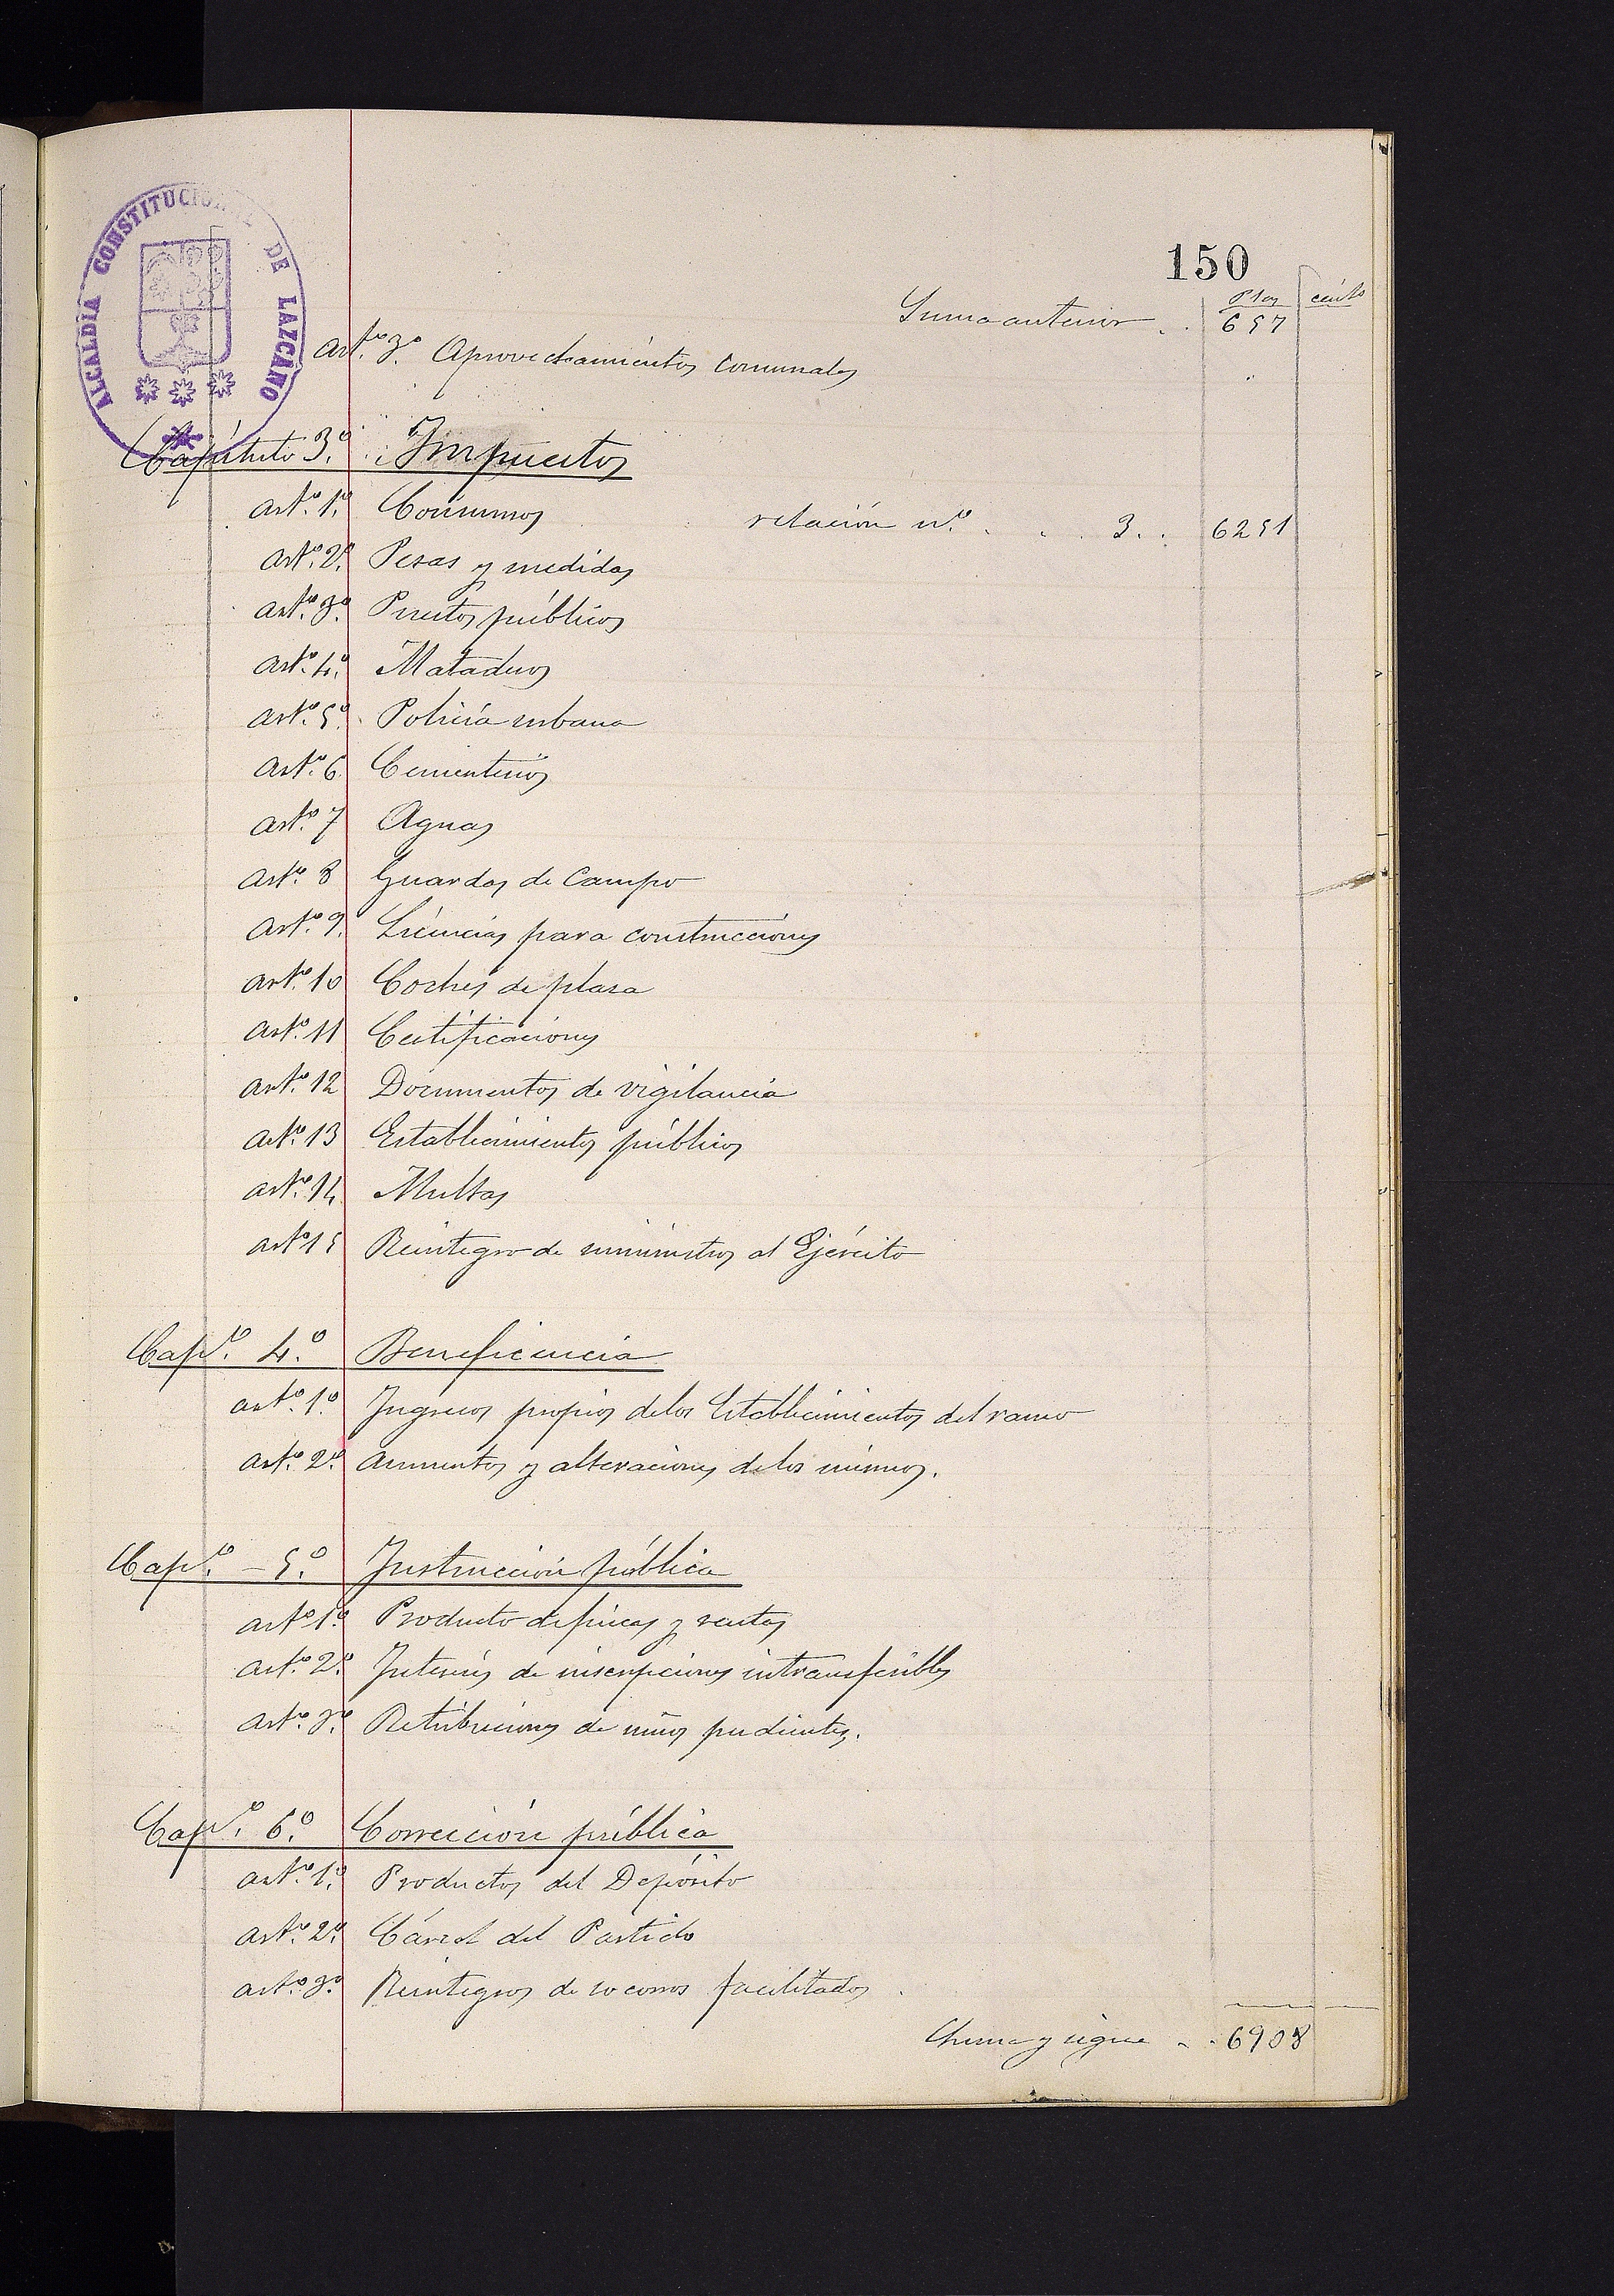 ALCALDIA CONSTITUCIONAL DE LAZCANO
150
Ptas cénts
Suma anterior . . 657
Artº. 3º. Aprovechamientos comunales
Capítulo 3º. Impuestos
Artº. 1º. Consumos relación nº. . . . 3 . . 6251
Artº. 2º. Pesas y medidas
Artº. 3º. Puestos públicos
Artº. 4º. Mataderos
Artº. 5º. Policía urbana
Artº. 6. Cementerios
Artº. 7 Aguas
Artº. 8 Guardas de Campo
Artº. 9. Licencias para construcciones
Artº. 10 Coches de plasa
Artº. 11 Certificaciones
Artº. 12 Documentos de vigilancia
Artº. 13 Establecimientos públicos
Artº. 14 Multas
Artº 15 Reintegro de suministros al Ejército
Capº. 4º. Beneficencia
artº. 1º. Ingresos propios de los Establecimientos del ramo
artº. 2º. Aumentos y alteraciones de los mismos.
Capº. - 5º. Instrucción pública
artº 1º. Producto de fincas y rentas
artº. 2º. Interés de inscripciones intransferibles
artº. 3º. Retribuciones de niños pudientes.
Capº. 6º. Corrección pública
artº. 1º. Productos del Depósito
artº. 2º. Cárcel del Partido
artº. 3º. Reintegros de socorros facilitados .
Suma y sigue . . 6908